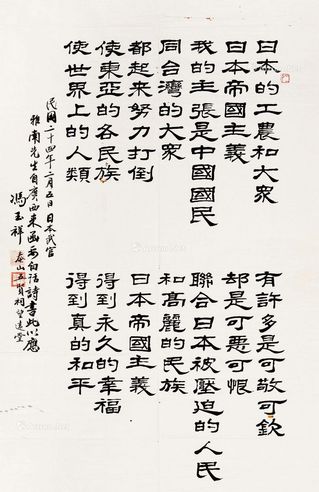 日本的工農和大衆
有許多是可敬可欽
日本帝國主義
却是可惡可恨
我的主張是中國國民
聯合日本被壓迫的人民
同台灣的大衆
和高麗的民族
都起來努力打倒
日本帝國主義
使東亞的各民族
得到永久的幸福
使世界上的人類
得到真的和平
民國二十四年二月五日日本武官
雅南先生自廣西來函索白話詩書此以應
馮玉祥
泰山五賢祠望遠堂